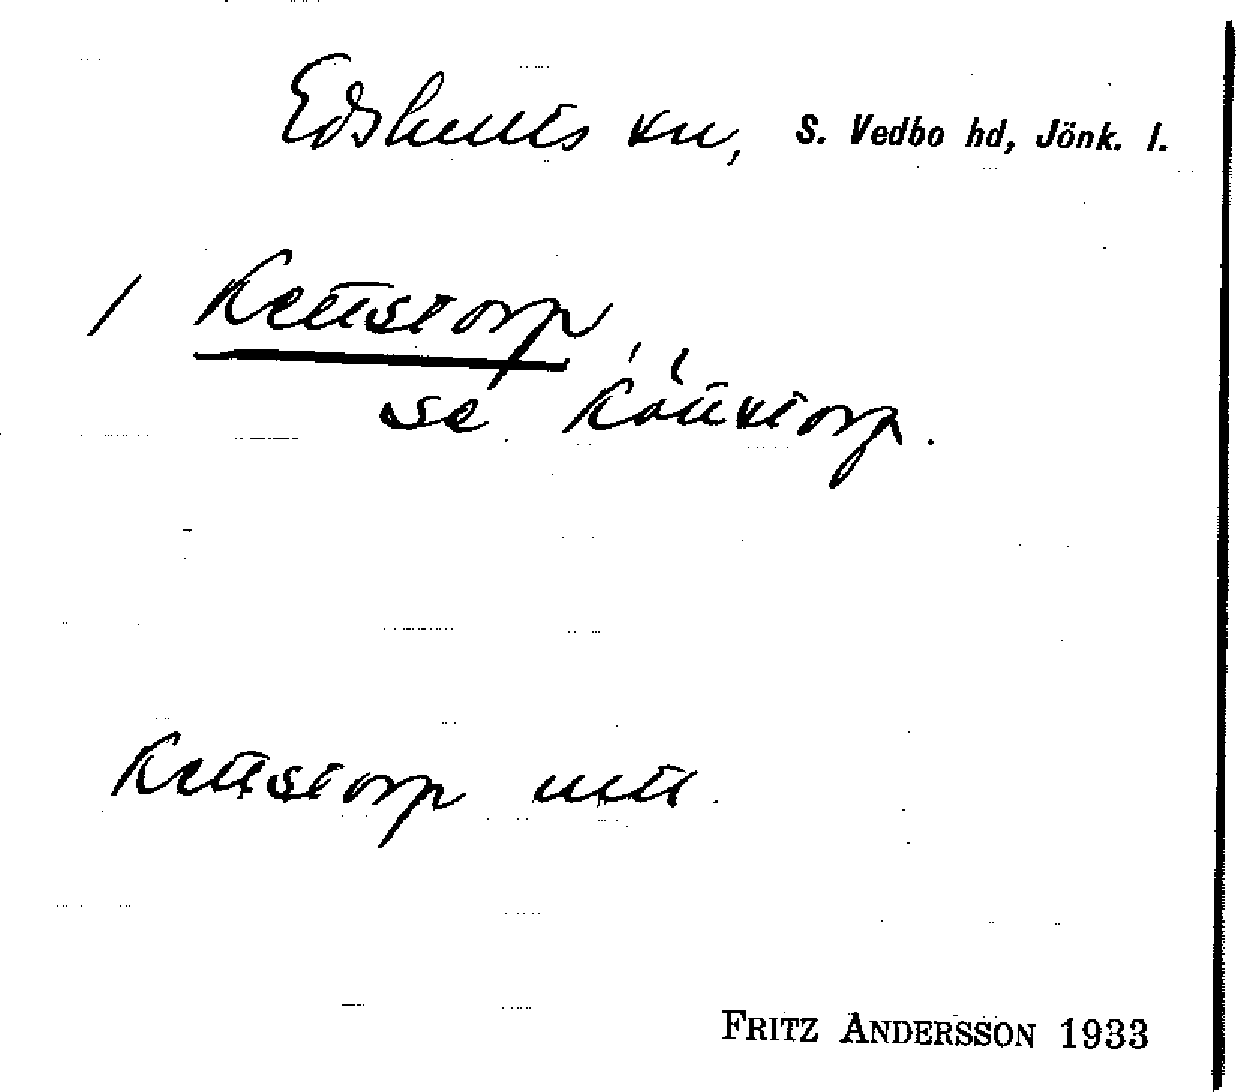 Edshults sn, S. Vedbo hd, Jönk. l.
/ Kettstorp
se Kättstorp.
Kettstorp
FRITZ ANDERSSON 1933